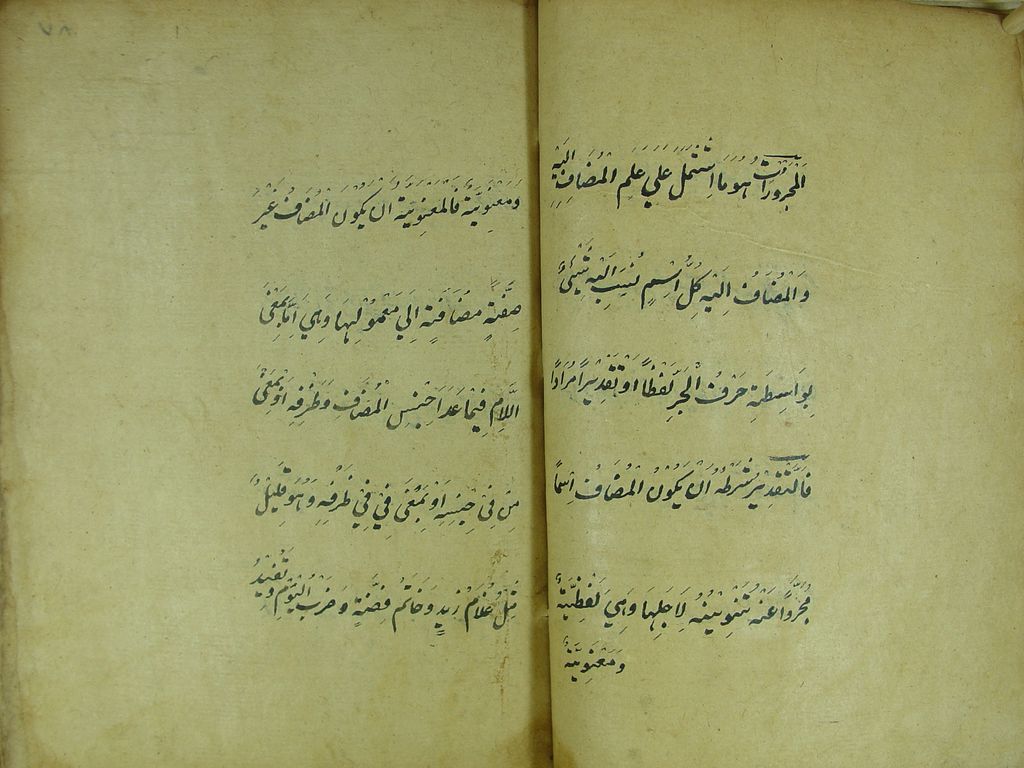 المجرورات هو ما اشتمل على علم المضاف اليه
والمضاف اليه كل اسم نسب اليه شيئ
بواسطة حرف الجر لفظا او تقديرا مرادا
فالتقدير شرطه ان يكون المضاف اسما
مجردا عنه تنوينه لاجلها وهي لفظية
ومعنوية
ومعنوية فالمعنوية ان يكون المضاف غير
صفة مضافة الى معمولها وهي اما بمعنى
اللام فيما عدا جنس المضاف وظرفه او بمعنى
من فى جنسه او بمعنى في في ظرفه وهو قليل
مثل غلام زيد وخاتم فضة وضرب اليوم وتفيد